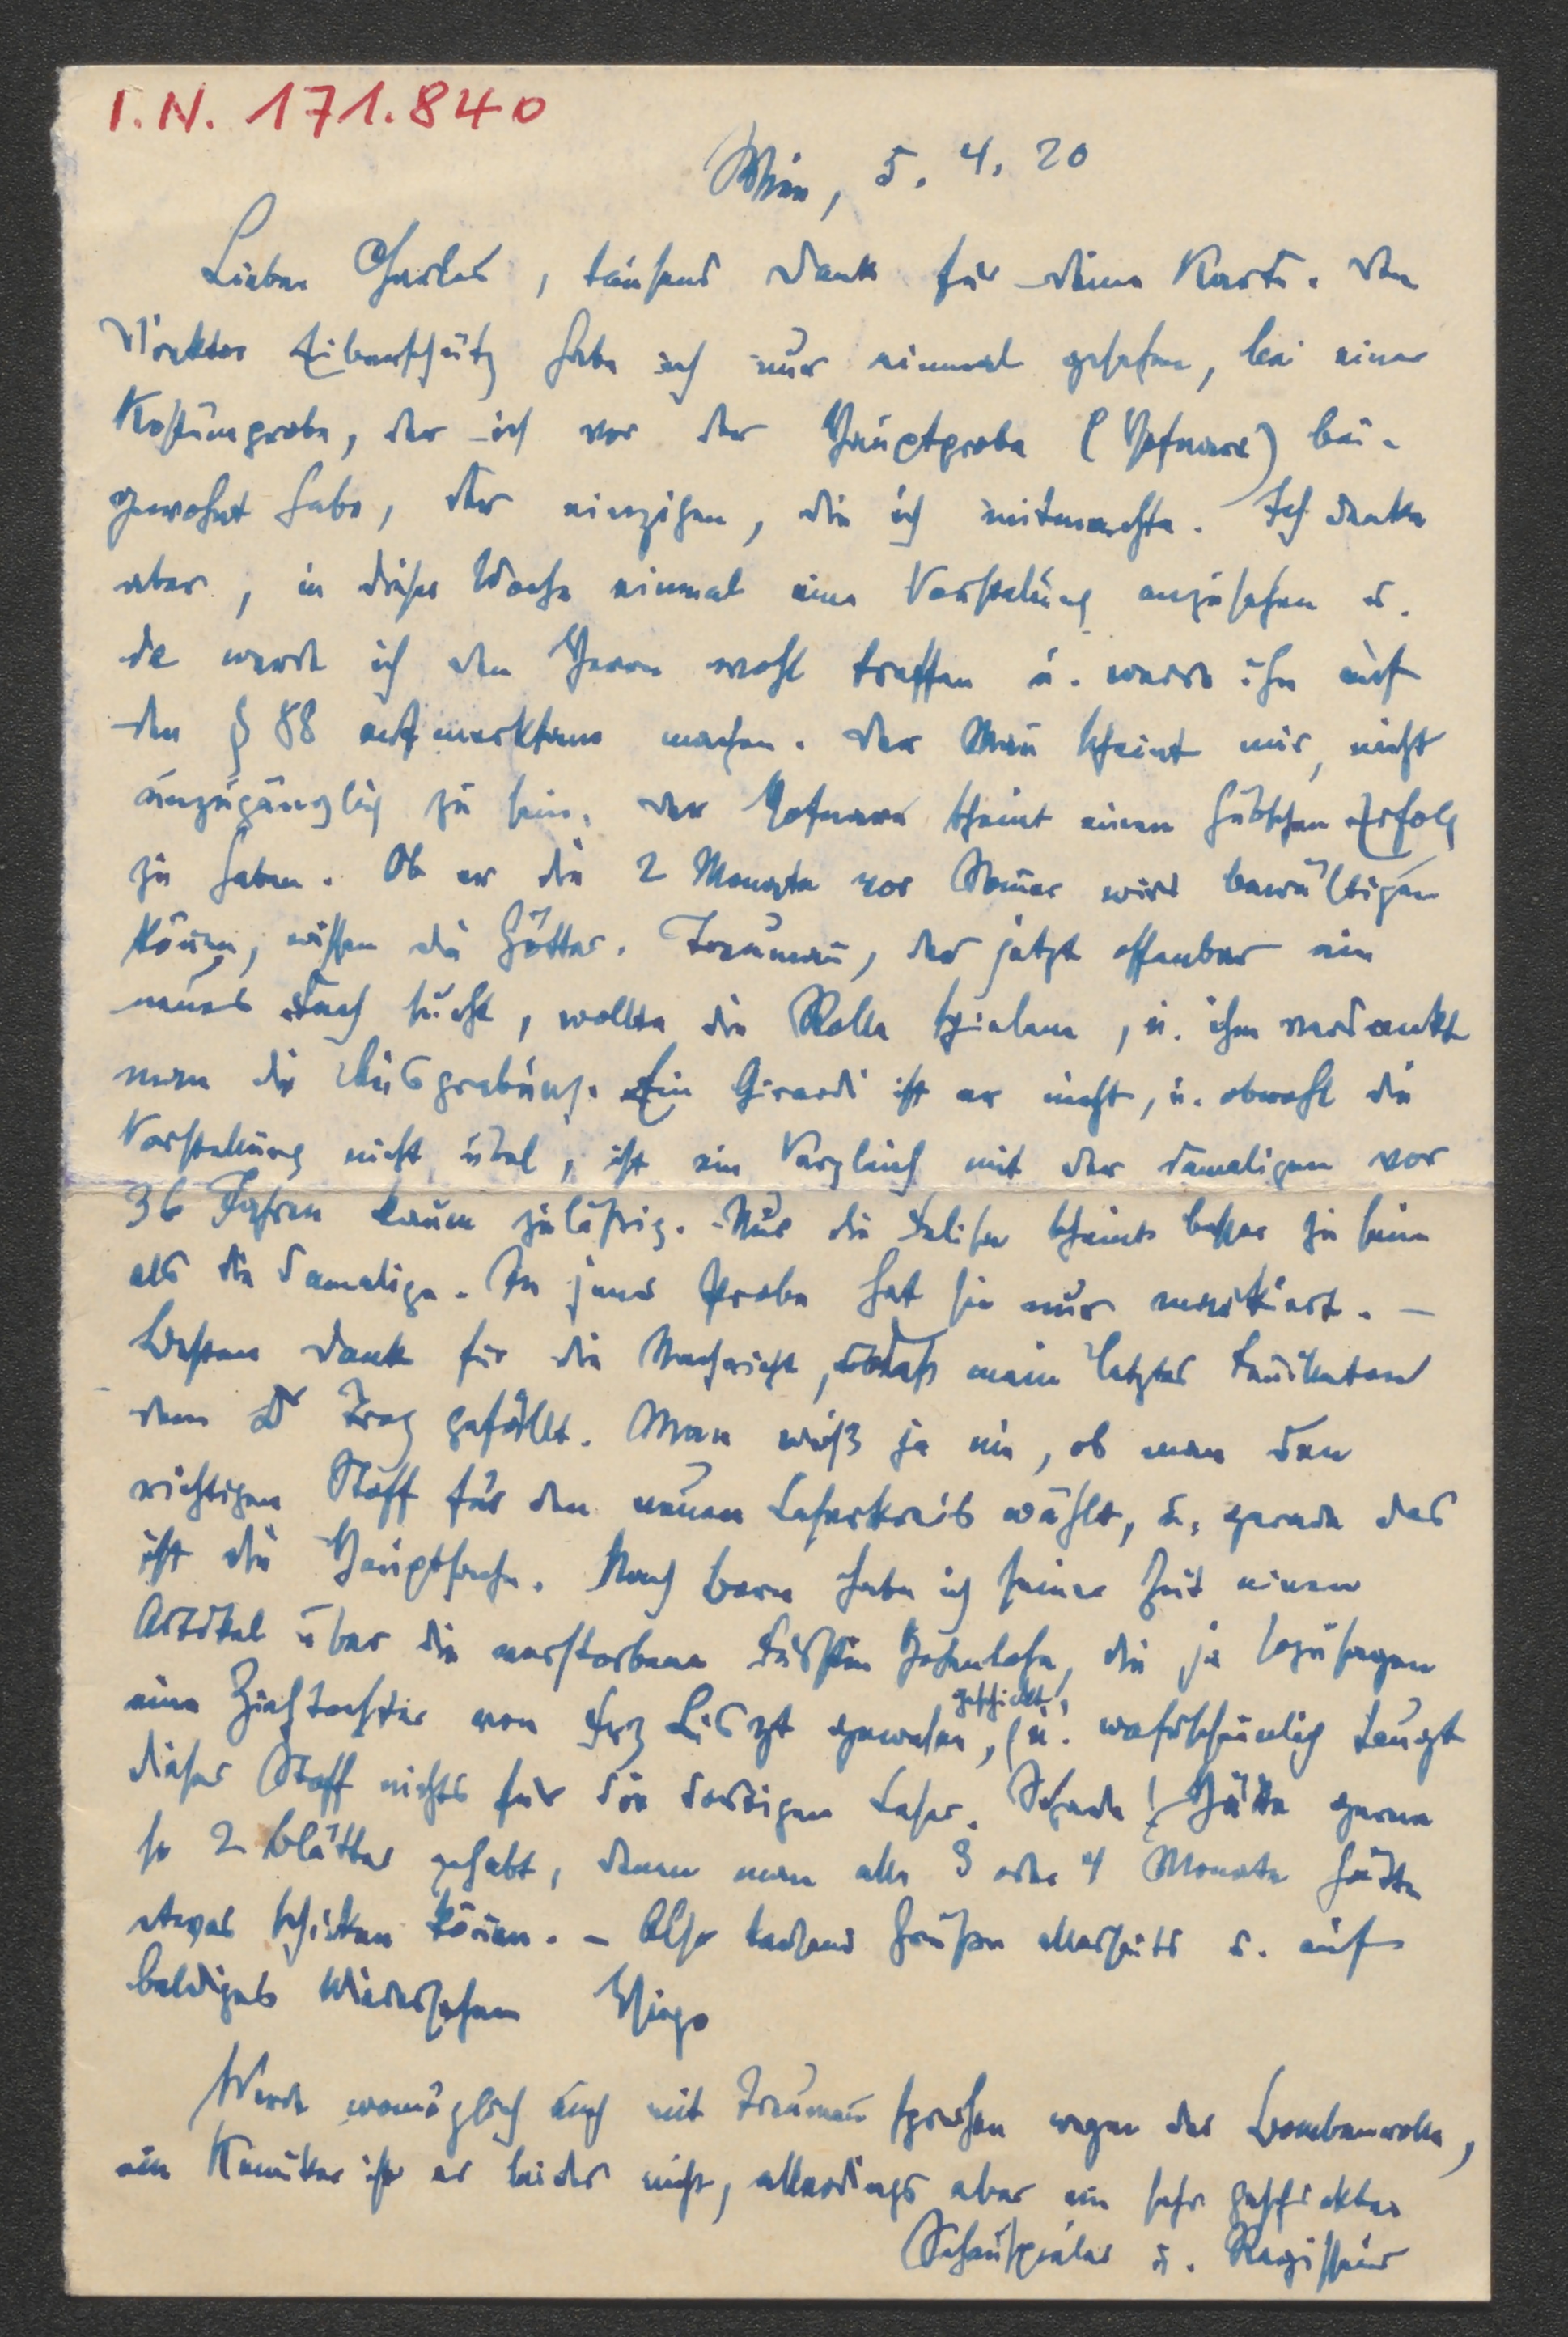 I. N. 171.840
Wien, 5. 4. 20
Lieber Charles, tausend Dank für deine Karte. Den
Direktor Eibenschütz habe ich nur einmal gesehen, bei einer
Kostümprobe, der ich vor der Hauptprobe (Hofnarr) bei-
gewohnt habe, der einzigen, die ich mitmachte. Ich denke
aber, in dieser Woche einmal eine Vorstellung anzusehen u.
da werde ich den Herrn wohl treffen u. werde ihn auf
den § 88 aufmerksam machen. Der Man̄ scheint mir, nicht
unzugänglich zu sein. Der Hofnarr scheint einen hübschen Erfolg
zu haben. Ob er die 2 Monate vor Som̄er wird bewältigen
kön̄en, wissen die Götter. Treuman̄, der jetzt offenbar ein
neues Fach sucht, wollte die Rolle spielen, u. ihm verdankt
man die Ausgrabung. Ein Girardi ist er nicht, u. obwohl die
Vorstellung nicht übel, ist ein Vergleich mit der damaligen vor
36 Jahren kaum zulässig. Nur die Felisa scheint besser zu sein
als die damalige. In jener Probe hat sie nur markiert. —
Besten Dank für die Nachricht, daß mein letztes Feuilleton
dem Dr Trog gefällt. Man weiß ja nie, ob man den
richtigen Stoff für den neuen Leserkreis wählt, u. gerade das
ist die Hauptsache. Nach Bern habe ich seiner Zeit einen
Artikel über die verstorbene Fürstin Hohenlohe, die ja sozusagen
eine Ziehtochter von Frz Liszt gewesen, geschickt, u. wahrscheinlich taugt
dieser Stoff nichts für die dortigen Leser. Schade! Hätte gerne
so 2 Blätter gehabt, denen man alle 3 oder 4 Monate hätte
etwas schicken kön̄en. – Also tausend Grüße allerseits u. auf
baldiges Wiedersehen
Werde womöglich auch mit Treuman̄ sprechen wegen der Bombenrolle,
ein Komiker ist er leider nicht, allerdings aber ein sehr geschickter
Schauspieler u. Regisseur